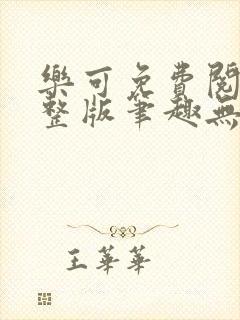 樂可免費閱
整版筆趣無
王華華